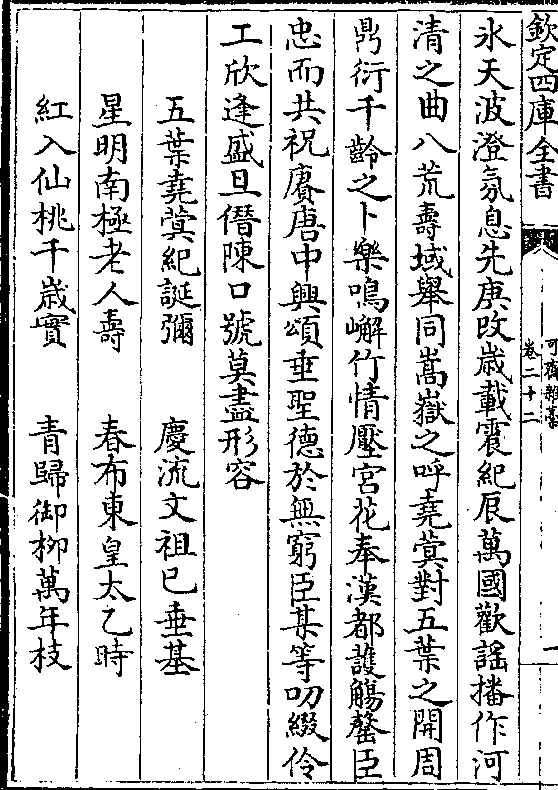 欽定四庫全書
可齋雜藁
卷二十二
氷天波澄氛息先庚改歲載震紀辰萬國歡謡播作河
清之曲八荒壽域舉同嵩嶽之呼堯蓂對五葉之開周
鼎衍千齡之卜樂鳴嶰竹情壓宮花奉漢都䕶觴罄臣
忠而共祝賡唐中興頌垂聖德於無窮臣某等叨綴伶
工欣逢盛旦僭陳口號莫盡形容
五葉堯蓂紀誕彌　慶流文祖已垂基
星明南極老人壽　春布東皇太乙時
紅入仙桃千歲實　青歸御柳萬年枝